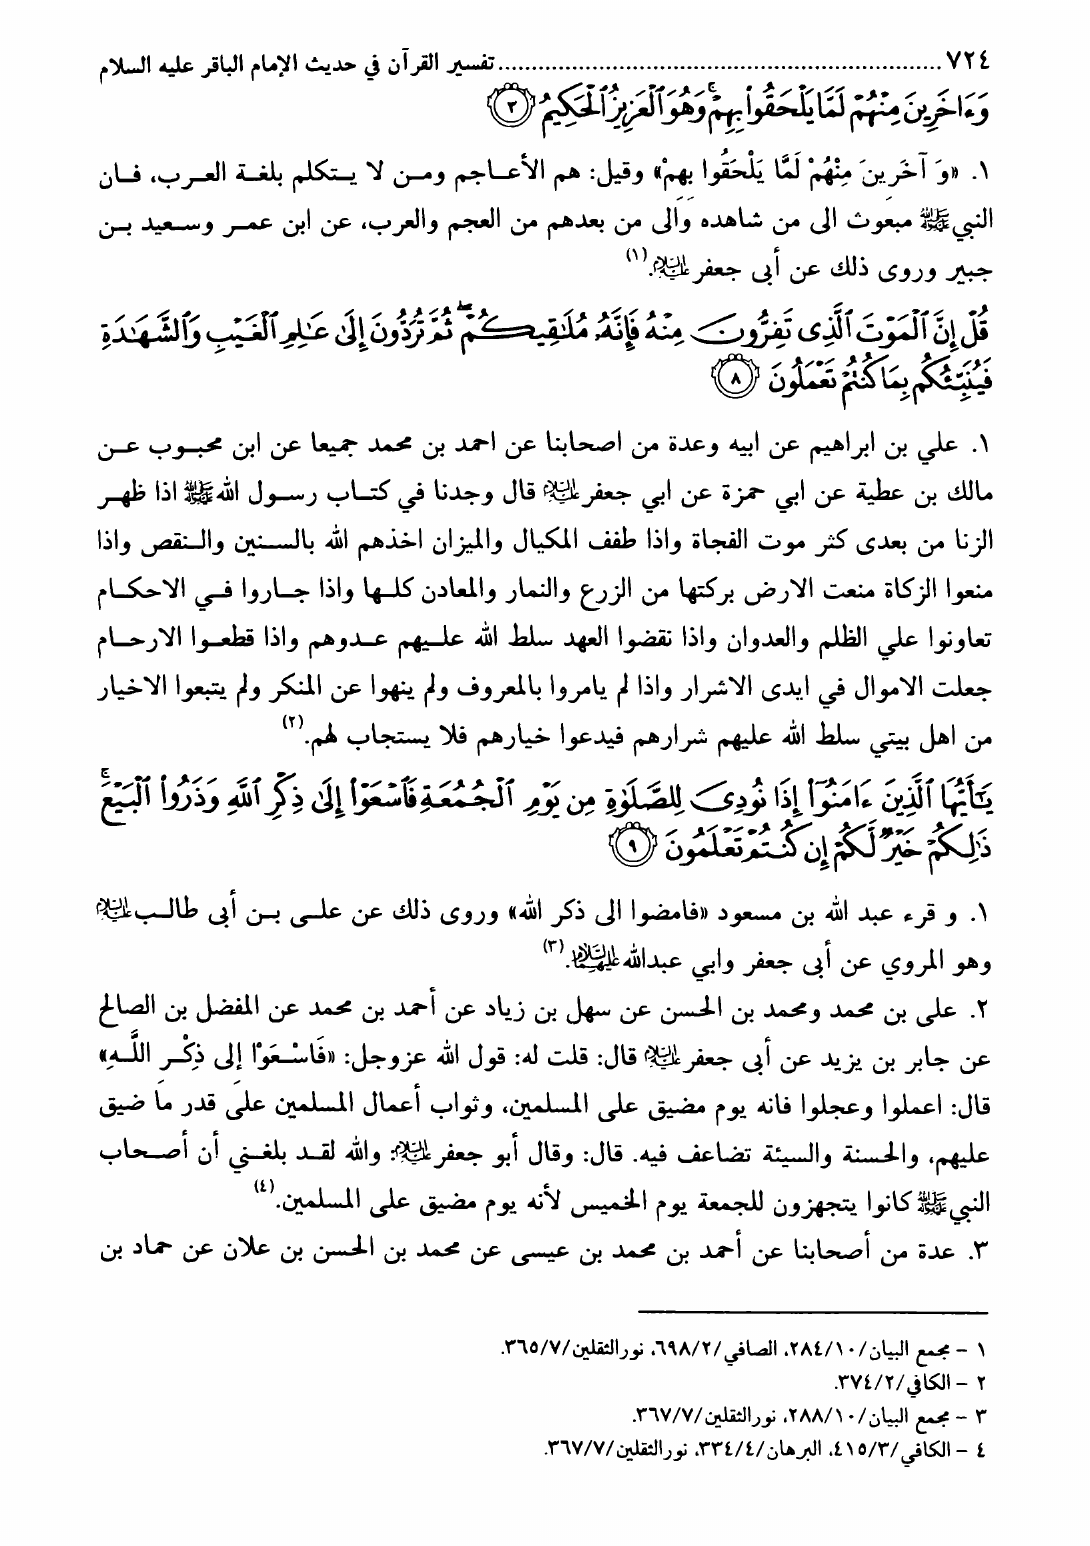 ٧٢٤ ................................................................ تفسير القرآن في حديث الإمام الباقر عليه السلام
وَءَاخَرِينَ مِنْهُمْ لَمَّا يَلْحَقُوا۟ بِهِمْ ۚ وَهُوَ ٱلْعَزِيزُ ٱلْحَكِيمُ ﴿٣﴾
١. «وَ آخَرِينَ مِنْهُمْ لَمَّا يَلْحَقُوا بِهِمْ» وقيل: هم الأعاجم ومن لا يتكلم بلغة العرب، فان
النبي ﷺ مبعوث الى من شاهده والى من بعدهم من العجم والعرب، عن ابن عمر وسعيد بن
جبير وروى ذلك عن أبى جعفر عليه السلام.(١)
قُلْ إِنَّ ٱلْمَوْتَ ٱلَّذِى تَفِرُّونَ مِنْهُ فَإِنَّهُۥ مُلَٰقِيكُمْ ۖ ثُمَّ تُرَدُّونَ إِلَىٰ عَٰلِمِ ٱلْغَيْبِ وَٱلشَّهَٰدَةِ
فَيُنَبِّئُكُم بِمَا كُنتُمْ تَعْمَلُونَ ﴿٨﴾
١. علي بن ابراهيم عن ابيه وعدة من اصحابنا عن احمد بن محمد جميعا عن ابن محبوب عن
مالك بن عطية عن ابي حمزة عن ابي جعفر عليه السلام قال وجدنا في كتاب رسول الله ﷺ اذا ظهر
الزنا من بعدى كثر موت الفجاة واذا طفف المكيال والميزان اخذهم الله بالسنين والنقص واذا
منعوا الزكاة منعت الارض بركتها من الزرع والثمار والمعادن كلها واذا جاروا في الاحكام
تعاونوا علي الظلم والعدوان واذا نقضوا العهد سلط الله عليهم عدوهم واذا قطعوا الارحام
جعلت الاموال في ايدى الاشرار واذا لم يامروا بالمعروف ولم ينهوا عن المنكر ولم يتبعوا الاخيار
من اهل بيتي سلط الله عليهم شرارهم فيدعوا خيارهم فلا يستجاب لهم.(٢)
يَٰٓأَيُّهَا ٱلَّذِينَ ءَامَنُوٓا۟ إِذَا نُودِىَ لِلصَّلَوٰةِ مِن يَوْمِ ٱلْجُمُعَةِ فَٱسْعَوْا۟ إِلَىٰ ذِكْرِ ٱللَّهِ وَذَرُوا۟ ٱلْبَيْعَ ۚ
ذَٰلِكُمْ خَيْرٌ لَّكُمْ إِن كُنتُمْ تَعْلَمُونَ ﴿٩﴾
١. و قرء عبد الله بن مسعود «فامضوا الى ذكر الله» وروى ذلك عن على بن أبى طالب عليه السلام
وهو المروي عن أبى جعفر وابي عبدالله عليهما السلام.(٣)
٢. على بن محمد ومحمد بن الحسن عن سهل بن زياد عن أحمد بن محمد عن المفضل بن الصالح
عن جابر بن يزيد عن أبى جعفر عليه السلام قال: قلت له: قول الله عزوجل: «فَاسْعَوْا إِلى ذِكْرِ اللَّهِ»
قال: اعملوا وعجلوا فانه يوم مضيق على المسلمين، وثواب أعمال المسلمين على قدر ما ضيق
عليهم، والحسنة والسيئة تضاعف فيه. قال: وقال أبو جعفر عليه السلام: والله لقد بلغني أن أصحاب
النبي ﷺ كانوا يتجهزون للجمعة يوم الخميس لأنه يوم مضيق على المسلمين.(٤)
٣. عدة من أصحابنا عن أحمد بن محمد بن عيسى عن محمد بن الحسن بن علان عن حماد بن
١ - مجمع البيان/١٠/٢٨٤، الصافي/٢/٦٩٨، نورالثقلين/٧/٣٦٥.
٢ - الكافي/٢/٣٧٤.
٣ - مجمع البيان/١٠/٢٨٨، نورالثقلين/٧/٣٦٧.
٤ - الكافي/٣/٤١٥، البرهان/٤/٣٣٤، نورالثقلين/٧/٣٦٧.